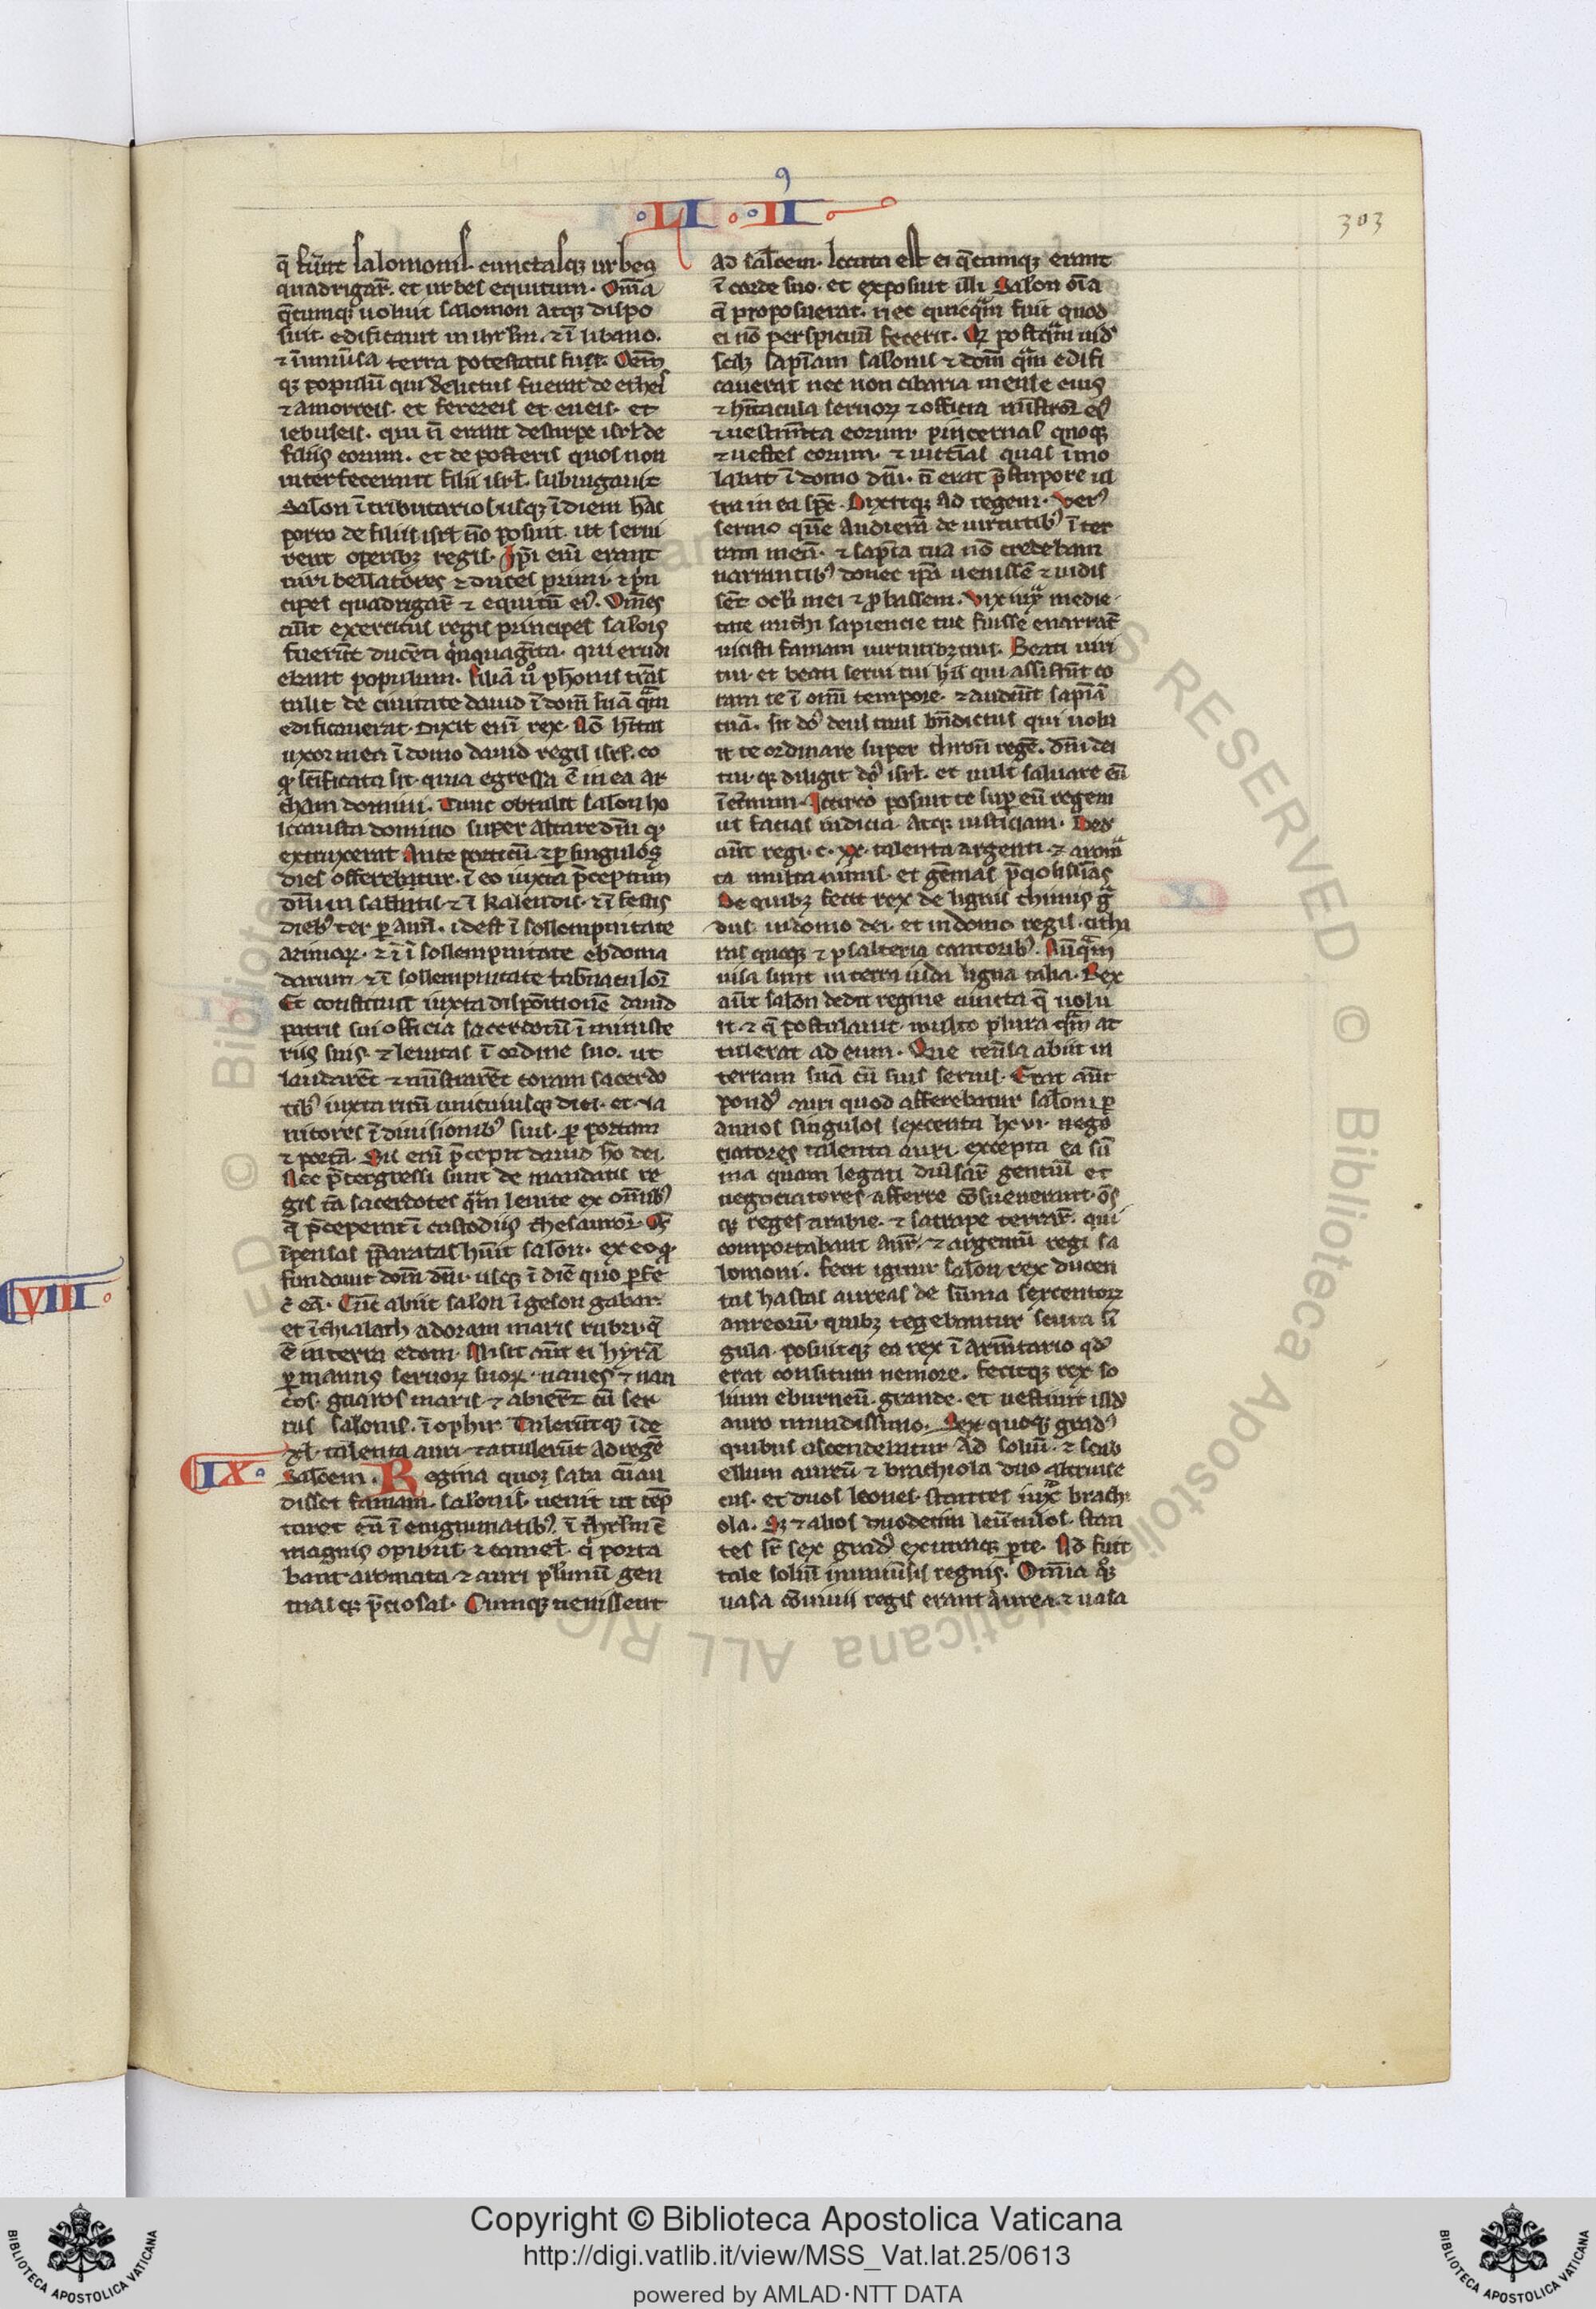 LI II
9
303
q̄ fūnt salomonis. cunctasqꝫ urbes
quadrigaꝝ. et urbes equitum. Om̄ia
q̄cumqꝫ uoluit salomon atqꝫ dispo
suit. edificauit in ihrl̄m. ⁊ ī libano.
⁊ ī uniũsa terra potestatis sue. Oēm
qꝫ populū qui delictus fuerat de etheis
⁊ amorreis. et ferezeis et eueis. et
iebuseis. qui n̄ erant de stirpe isrł de
filiis eorum. et de posteris quos non
interfecerant filii isrł. subiugauit
Salon ī tributarios usqꝫ ī diem hāc
porro de filiis isrł nō posuit. ut serui
rent operibꝫ regis. Ip̄i eni erant
uiri bellatores ⁊ duces primi. ⁊ p̄n
cipes quadrigaꝝ ⁊ equitū ei᾿. Om̄es
aūt exercitus regis principes salōis
fuerūt ducēti q̇nquagīta. qui erudi
ebant populum. Filiā u̾o ꝑhonis trās
tulit de ciuitate dauid ī domū suā quā
edificauerat. Dixit eni rex. Nō hītat
uxor mea ī domo dauid regis isrł. eo
ꝙ sc̄ificata sit. quia egressa ē in ea ar
cham domini. Tunc obtulit salon ho
locausta domino super altare dn̄i ꝙ
extruxerat Ante porticū. ⁊ ꝑ singulos
dies offerebatur. ī eo iuxta p̄ceptum
dn̄i in sabbatis. ⁊ ī kalendis. ⁊ ī festis
dieb᾿ ter ꝑ annū. id est ī sollempnitate
azimoꝝ. ⁊ ī sollempnitate ebdoma
darum. ⁊ ī sollempnitate tabn̄aculoꝝ
Et constituit iuxta dispōitionē dauid
patris sui officia sacerdotū ī ministe
riis suis. ⁊ leuitas ī ordine suo. ut
laudarēt ⁊ mīstrarēt coram sacerdo
tib᾿ iuxta ritū uniuiusqꝫ diei. et ia
nitores ī diuisionib᾿ suis. ꝑ portam
⁊ portā. Sic eni p̄cepit dauid hō dei.
Nec p̄tergressi sunt de mandatis re
gis tā sacerdotes quā leuite ex omnib᾿
q̄ p̄ceperat ī custodiis thesauroꝝ. Os̄
īpensas p̄paratas hūit salon. ex eo ꝙ
fundauit domū dn̄i. usqꝫ ī diē quo ꝑfe
c̄ eā. Tūc abiit salon ī gesion gabar.
et ī hialath ad oram maris rubri q̄
ē in terra edom. Misit aūt ei hyrā
ꝑ manus seruoꝝ suoꝝ. naues ⁊ nau
tas. gnaros maris. ⁊ abierūt cū ser
uis salōnis. ī ophir. Tulerūtqꝫ īde
xl. talenta auri. ⁊ attulerūt ad regē
IX
Salōem. Regina quoꝫ saba cū au
disset famam. salōnis. uenit ut tēp
taret eū ī enigmatib᾿. ī ihrl̄m c̄
magnis opibus. ⁊ camel. q̇ porta
bant aromata ⁊ auri plurimū gem
masqꝫ p̄ciosas. Cumqꝫ uenissent
ad salōem. locuta est ei q̄cumqꝫ erant
ī corde suo. et exposuit illi Salon oīa
q̄ proposuerat. nec quicquā fuit quod
ei nō perspicuū fecerit. Qꝫ postquā uid
scilꝫ sapīam salōnis ⁊ domū quā edifi
cauerat nec non cibaria mense eius
⁊ hītacula seruoꝝ ⁊ officia mīstroꝝ ei᾿
⁊ uestimēta eorum. pincernas quoqꝫ
⁊ uestes eorum. ⁊ uictīas quas imo
labat ī domo dn̄i. n̄ erat p̄ stupore ul
tra in ea spc̄. Dixitqꝫ ad regem. Ver᾿
sermo quē Audierā de uirtutib᾿ ī ter
ram meā. ⁊ sapīa tua nō credebam
narrantib᾿ donec ip̄a uenissē ⁊ uidis
sēt oculi mei ⁊ ꝓbassem. Vix mꝫ medie
tatē michi sapiencie tue fuisse enarratā
uicisti famam uirtutibꝫ tuis. Beati uiri
tui. et beati serui tui hii qui assistūt co
ram te ī omni tempore. ⁊ audiūt sapīā
tuā. sit dn̄s deus tuus bn̄dictus qui uolu
it te ordinare super thronū regē. dn̄i dei
tui. qꝫ diligit dn̄s isrł. et uult saluare eū
ī eternum. Idcirco posuit te sup eū regem
ut facias iudicia. Atqꝫ iusticiam. Ded
aūt regi. c. xx. talenta argenti. ⁊ aroma
ta multa nimis. et gēmas p̄ciosissimas
De quibꝫ fecit rex de lignis thinis gra
dus. in domo dei. et in domo regis. citha
ras quoqꝫ ⁊ psalteria cantorib᾿. Nūquā
uisa sunt in terra iuda ligna talia. Rex
aūt salon dedit regine cuncta q̄ uolu
it. ⁊ q̄ postulauit. multo plura quā at
tulerat ad eum. Que reūsa abiit in
terram suā cū suis seruis. Erat aūt
pond᾿ auri quod afferebatur salōni ꝑ
annos singulos sexcenta lxvi. nego
ciatores talenta auri. excepta ea sū
ma quam legati diūsarꝝ gentiū et
negociatores afferre cōsueuerant. oēs
qꝫ reges arabie. ⁊ satrape terrarꝝ. qui
comportabant Aurū. ⁊ argentū regi sa
lomoni. fecit igitur salon rex ducen
tas hastas aureas de sūma sexcentoꝝ
aureorū. quibꝫ tegebantur scuta sī
gula. posuitqꝫ ea rex ī armītario qd᾿
erat consitum nemore. fecitqꝫ rex so
lium eburneū. grande. et uestiuit illd᾿
auro mundissimo. Sex quoqꝫ grad᾿
quibus ascendebatur Ad soliū. ⁊ scab
ellum aureū ⁊ brachiola duo altrinse
cus. et duos leones. stantes iuxᵃ brachi
ola. Sꝫ ⁊ alios duodecim leūculos. stan
tes sr̄ sex grad᾿ ex utraqꝫ ꝑte. Nō fuit
tale soliū in uniūsis regnis. Omnia quoqꝫ
uasa cōuiuii regis erant aurea. ⁊ uasa
VIII
Copyright © Biblioteca Apostolica Vaticana
http://digi.vatlib.it/view/MSS_Vat.lat.25/0613
powered by AMLAD·NTT DATA
BIBLIOTECA APOSTOLICA VATICANA
BIBLIOTECA APOSTOLICA VATICANA